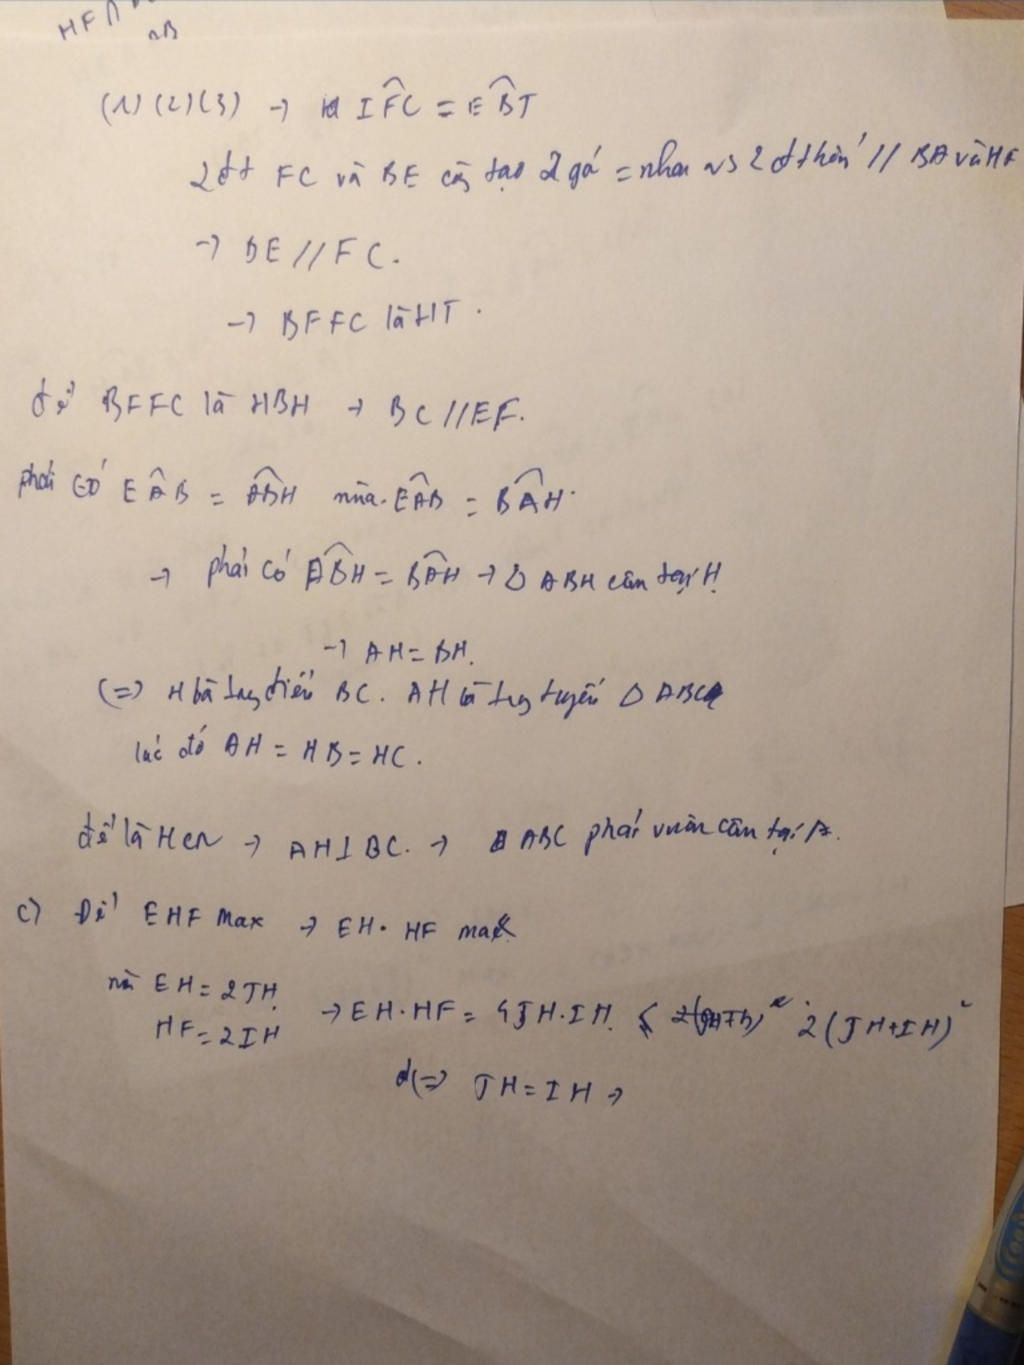 HF
AB
(1) (2) (3) → IFC = EBT
2 đt FC và BE cùng tạo 2 gó = nhau vs 2 đ thẳn // BA và HF
→ BE // FC.
→ BFFC là HT.
để BFFC là HBH → BC // EF.
phải có EAB = ABH mà EAB = BAH.
→ phải có ABH = BAH → Δ ABH cân tại H
→ AH = BH.
(=) H là điểm BC. AH là tuyến Δ ABC
lúc đó AH = HB = HC.
để là HCN → AH ⊥ BC. → ABC phải vuôn cân tại A.
c) Để EHF Max → EH. HF max
mà EH = 2JH
HF = 2IH
→ EH.HF = 4JH.IH. ≤ 2(JH+IH)²
(=) JH = IH →